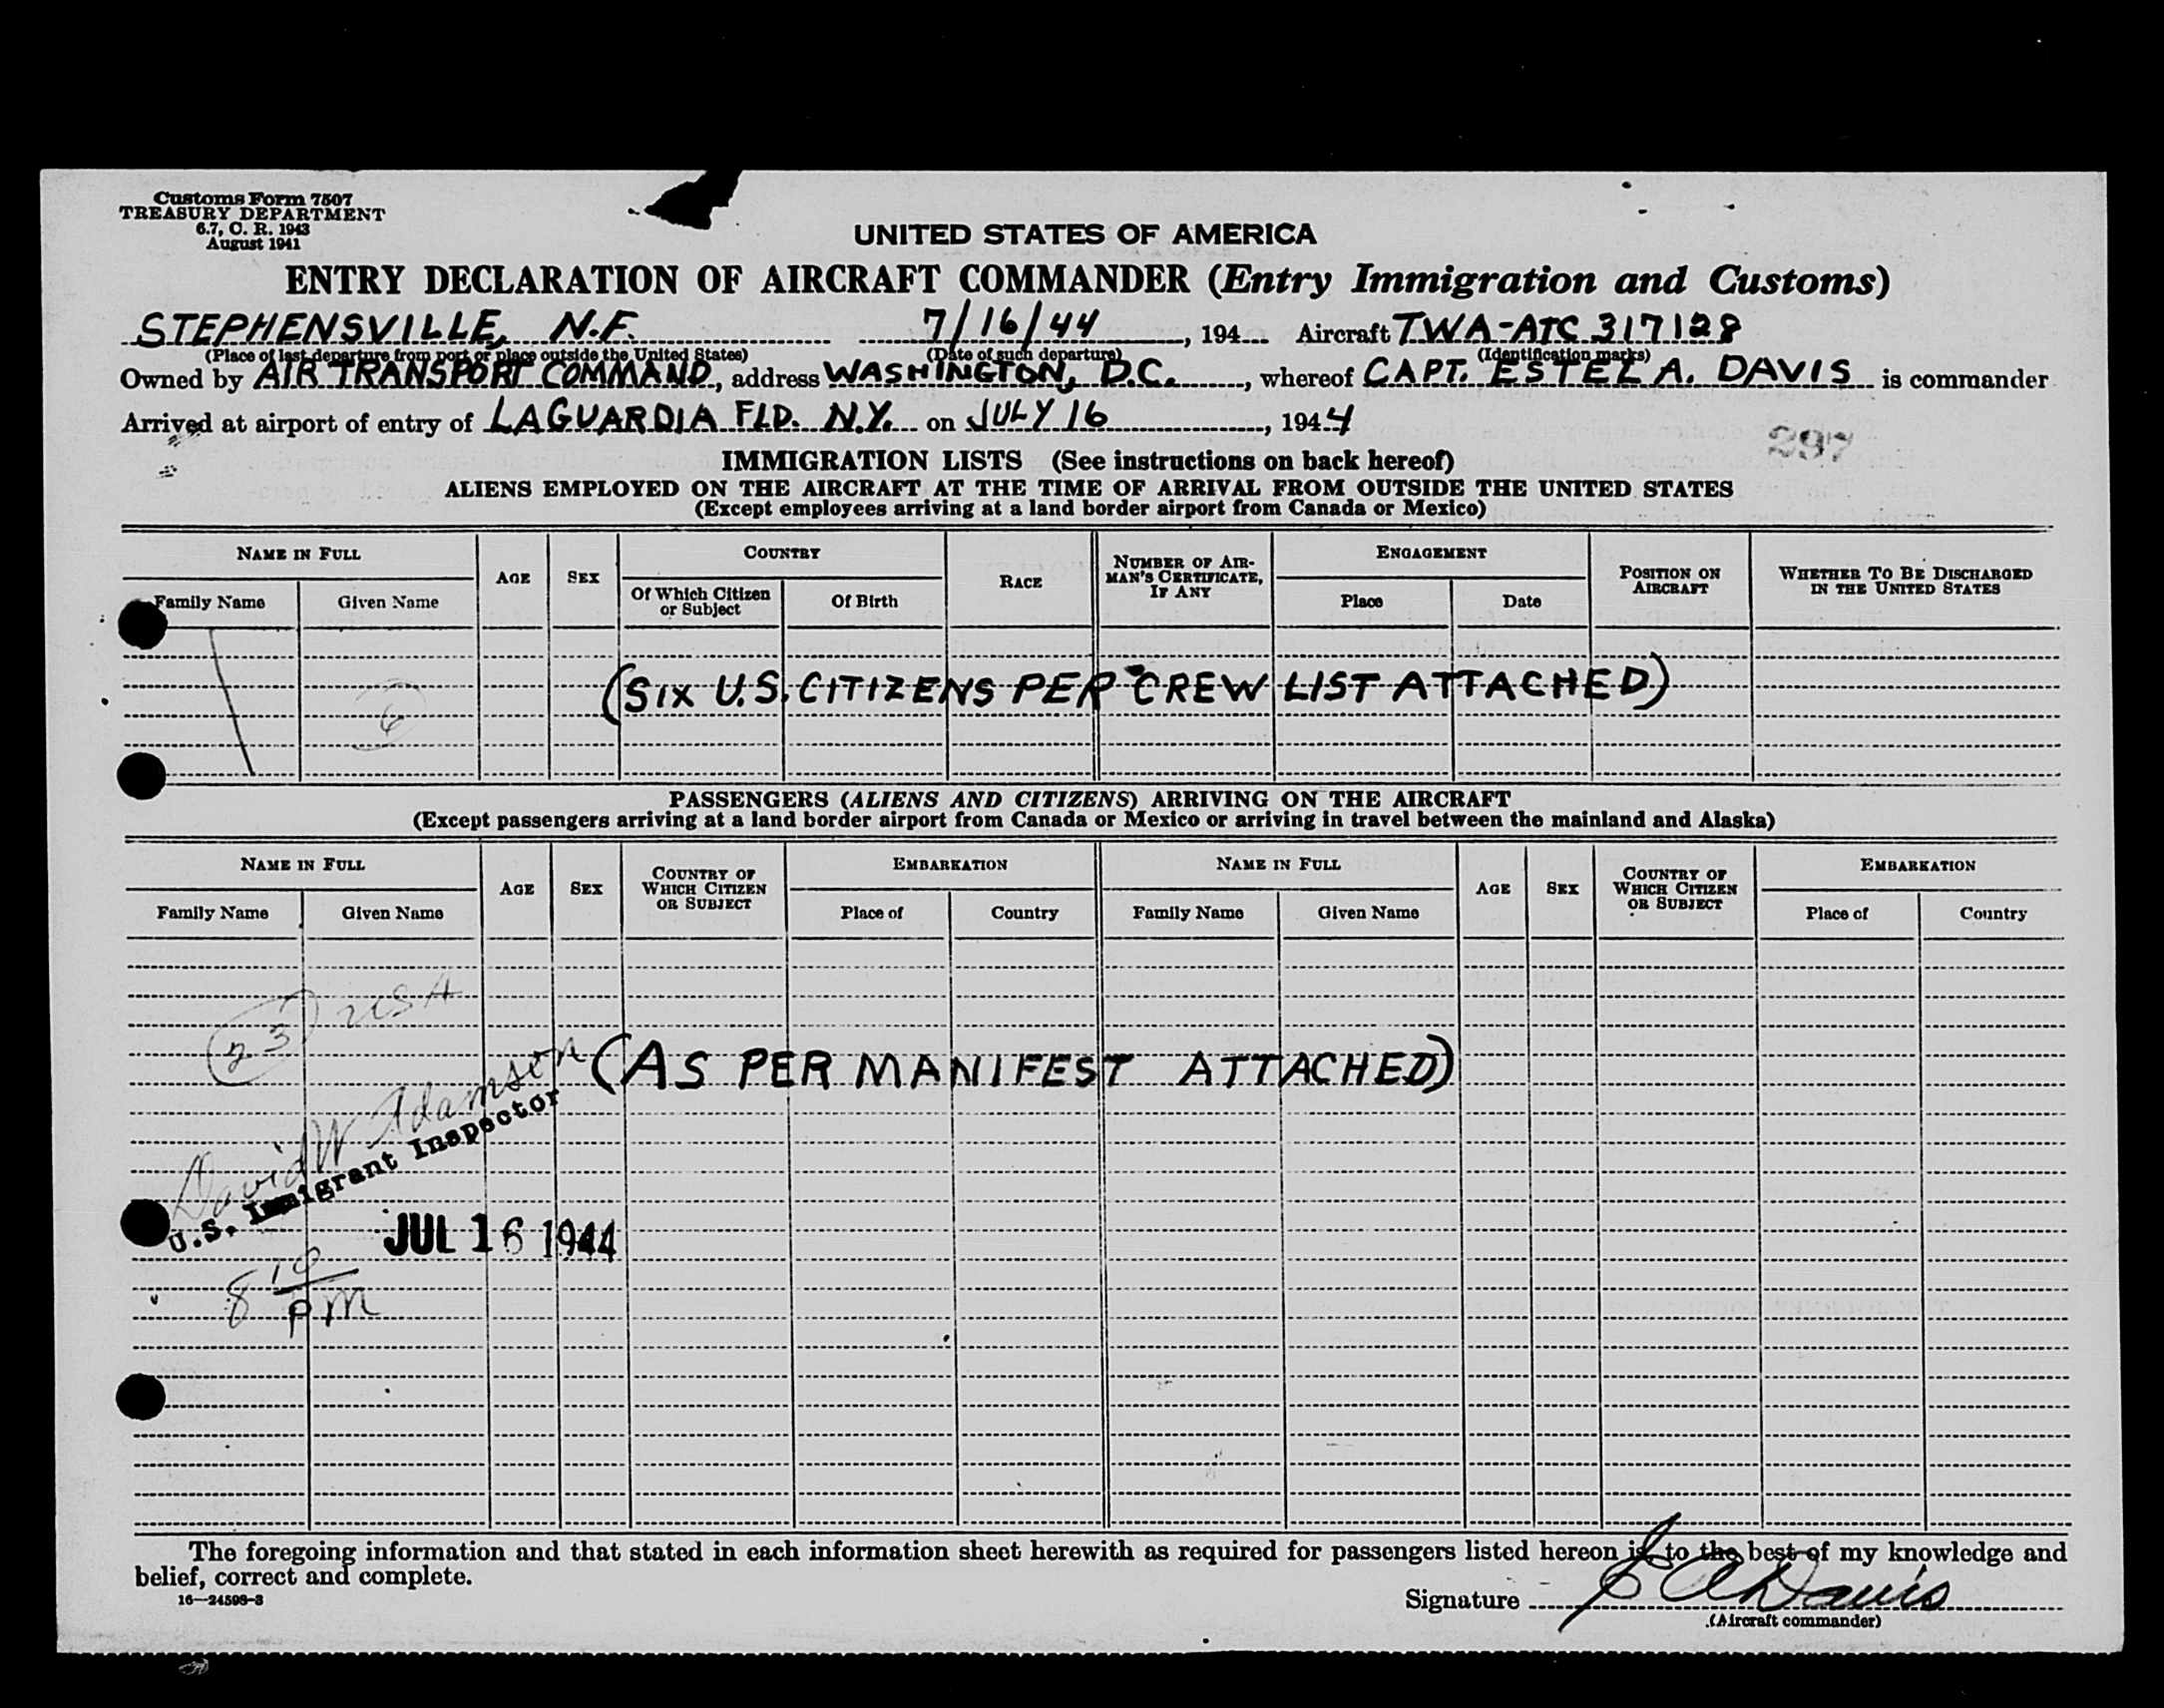 Customs Form 7507
TREASURY DEPARTMENT
6.7, C. R. 1943
August 1941
UNITED STATES OF AMERICA
ENTRY DECLARATION OF AIRCRAFT COMMANDER (Entry Immigration and Customs)
STEPHENSVILLE, N.F. 7/16/44, 194 Aircraft TWA-ATC 317128
(Place of last departure from port or place outside the United States) (Date of such departure) (Identification marks)
Owned by AIR TRANSPORT COMMAND, address WASHINGTON, D.C., whereof CAPT. ESTEL A. DAVIS is commander
Arrived at airport of entry of LAGUARDIA FLD. N.Y. on JULY 16, 1944
297
IMMIGRATION LISTS (See instructions on back hereof)
ALIENS EMPLOYED ON THE AIRCRAFT AT THE TIME OF ARRIVAL FROM OUTSIDE THE UNITED STATES
(Except employees arriving at a land border airport from Canada or Mexico)
NAME IN FULL AGE SEX COUNTRY RACE NUMBER OF AIRMAN'S CERTIFICATE, IF ANY ENGAGEMENT POSITION ON AIRCRAFT WHETHER TO BE DISCHARGED IN THE UNITED STATES
Family Name Given Name Of Which Citizen or Subject Of Birth Place Date
(SIX U.S. CITIZENS PER CREW LIST ATTACHED)
6
PASSENGERS (ALIENS AND CITIZENS) ARRIVING ON THE AIRCRAFT
(Except passengers arriving at a land border airport from Canada or Mexico or arriving in travel between the mainland and Alaska)
NAME IN FULL AGE SEX COUNTRY OF WHICH CITIZEN OR SUBJECT EMBARKATION NAME IN FULL AGE SEX COUNTRY OF WHICH CITIZEN OR SUBJECT EMBARKATION
Family Name Given Name Place of Country Family Name Given Name Place of Country
23 USA
(AS PER MANIFEST ATTACHED)
David W Adamson
U.S. Immigrant Inspector
JUL 16 1944
8 10 pm
The foregoing information and that stated in each information sheet herewith as required for passengers listed hereon is to the best of my knowledge and
belief, correct and complete.
16—24598-3
Signature E A Davis
(Aircraft commander)